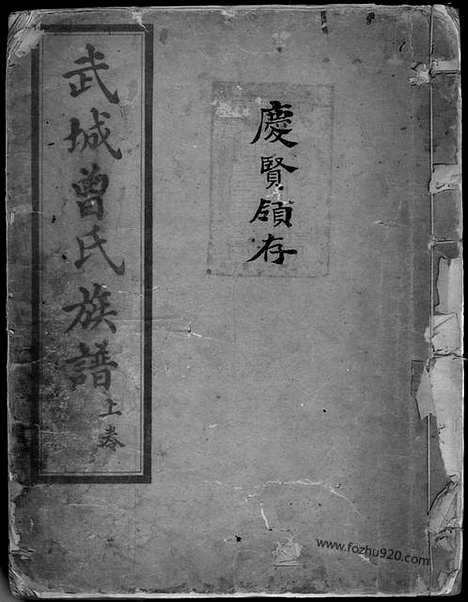 慶賢領存
武城曾氏族譜
上卷
www.fozhu920.com